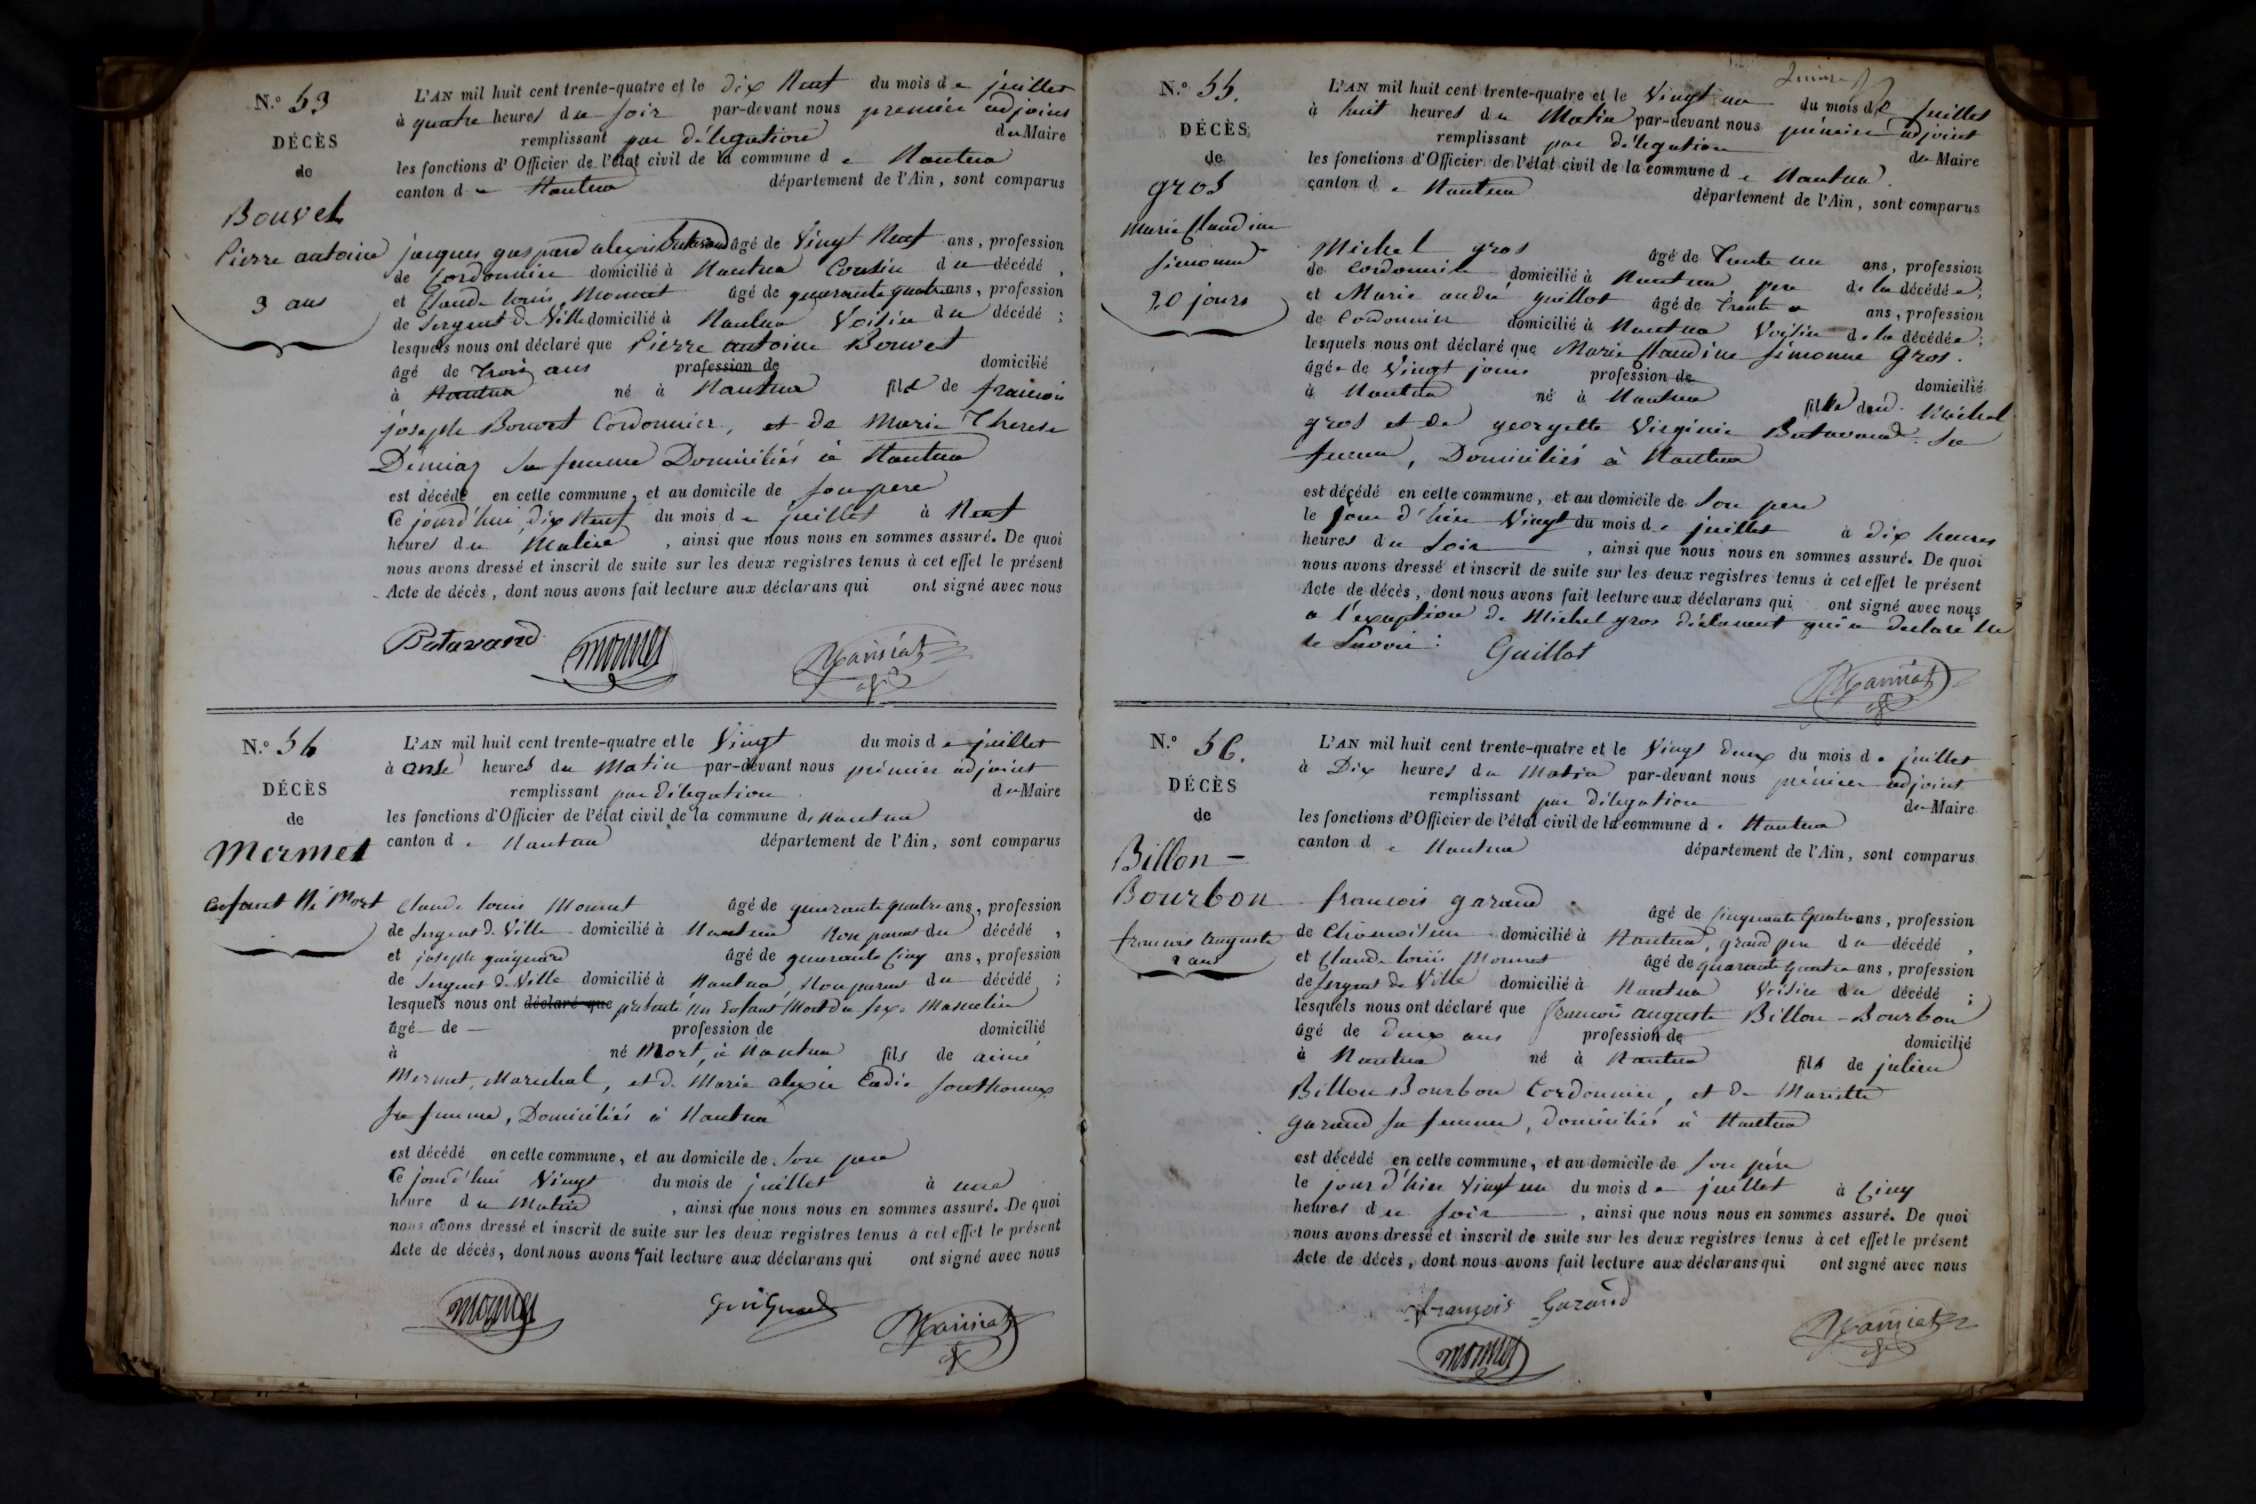 N.º 53
DÉCÈS
de
Bouvet
Pierre antoine
3 ans
L'AN mil huit cent trente-quatre et le dix Neuf du mois de juillet
à quatre heures du soir par-devant nous premier adjoint
remplissant par délégation du Maire
les fonctions d'Officier de l'état civil de la commune de Nantua
canton de Nantua département de l'Ain, sont comparus
jacques gaspard alexis Butavand âgé de Vingt Neuf ans, profession
de Cordonnier domicilié à Nantua Cousin du décédé,
et Claude louis Monnet âgé de quarante quatre ans, profession
de Sergent de Ville domicilié à Nantua Voisin du décédé ;
lesquels nous ont déclaré que Pierre antoine Bouvet
âgé de trois ans profession de domicilié
à Nantua né à Nantua fils de françois
joseph Bouvet Cordonnier, et de Marie Therese
Démiaz sa femme Domiciliés à Nantua
est décédé en cette commune, et au domicile de son pere
Ce jourd'hui dix Neuf du mois de juillet à Neuf
heures du Matin, ainsi que nous nous en sommes assuré. De quoi
nous avons dressé et inscrit de suite sur les deux registres tenus à cet effet le présent
Acte de décès, dont nous avons fait lecture aux déclarans qui ont signé avec nous
Butavand monnet
N.º 54
DÉCÈS
de
Mermet
enfant Né Mort
L'AN mil huit cent trente-quatre et le Vingt du mois de juillet
à onse heures du Matin par-devant nous prémier adjoint
remplissant par délégation du Maire
les fonctions d'Officier de l'état civil de la commune de Nantua
canton de Nantua département de l'Ain, sont comparus
Claude louis Monnet âgé de quarante quatre ans, profession
de Sergent de Ville domicilié à Nantua Non parent du décédé,
et joseph guignard âgé de quarante Cinq ans, profession
de Sergent de Ville domicilié à Nantua, Non parent du décédé ;
lesquels nous ont déclaré que présenté un Enfant Mort du sexe Masculin
âgé de profession de domicilié
à né Mort, à Nantua fils de aimé
Mermet, Maréchal, et de Marie alexie Eadie Southonnax
sa femme, Domiciliés à Nantua
est décédé en cette commune, et au domicile de son pere
Ce jourd'hui Vingt du mois de juillet à une
heure du Matin, ainsi que nous nous en sommes assuré. De quoi
nous avons dressé et inscrit de suite sur les deux registres tenus à cet effet le présent
Acte de décès, dont nous avons fait lecture aux déclarans qui ont signé avec nous
monnet Guignard
N.º 55.
DÉCÈS
de
gros
Marie Claudine
Simonne
20 jours
L'AN mil huit cent trente-quatre et le Vingt un du mois de juillet
à huit heures du Matin par-devant nous prémier adjoint
remplissant par délégation du Maire
les fonctions d'Officier de l'état civil de la commune de Nantua.
canton de Nantua département de l'Ain, sont comparus
Michel gros âgé de Trente un ans, profession
de Cordonnier domicilié à Nantua, pere de la décédée,
et Marie andré guillot âgé de trente ans, profession
de Cordonnier domicilié à Nantua Voisin de la décédée ;
lesquels nous ont déclaré que Marie Claudine Simonne Gros.
âgée de Vingt jours profession de domicilié
à Nantua né à Nantua fille de Michel
gros et de georgette Virginie Butavand sa
femme, Domiciliés à Nantua
est décédé en cette commune, et au domicile de son pere
le jour d'hier Vingt du mois de juillet à dix heures
heures du Soir, ainsi que nous nous en sommes assuré. De quoi
nous avons dressé et inscrit de suite sur les deux registres tenus à cet effet le présent
Acte de décès, dont nous avons fait lecture aux déclarans qui ont signé avec nous
a l'exception de Michel gros déclarant qui a declaré Ne
le Savoir : Guillot
N.º 56.
DÉCÈS
de
Billon-
Bourbon
francois auguste
2 ans
L'AN mil huit cent trente-quatre et le Vingt deux du mois de juillet
à Dix heures du Matin par-devant nous prémier adjoint
remplissant par délégation du Maire
les fonctions d'Officier de l'état civil de la commune de Nantua
canton de Nantua département de l'Ain, sont comparus
francois garand âgé de Cinquante Quatre ans, profession
de Chamoiseur domicilié à Nantua, grand pere du décédé,
et Claude louis Monnet âgé de quarante quatre ans, profession
de Sergent de Ville domicilié à Nantua Voisin du décédé ;
lesquels nous ont déclaré que francois auguste Billon-Bourbon
âgé de deux ans profession de domicilié
à Nantua né à Nantua fils de julien
Billon Bourbon Cordonnier, et de Mariette
garand sa femme, domiciliés à Nantua
est décédé en cette commune, et au domicile de son pére
le jour d'hier Vingt un du mois de juillet à Cinq
heures du soir, ainsi que nous nous en sommes assuré. De quoi
nous avons dressé et inscrit de suite sur les deux registres tenus à cet effet le présent
Acte de décès, dont nous avons fait lecture aux déclarans qui ont signé avec nous
françois Garand
monnet